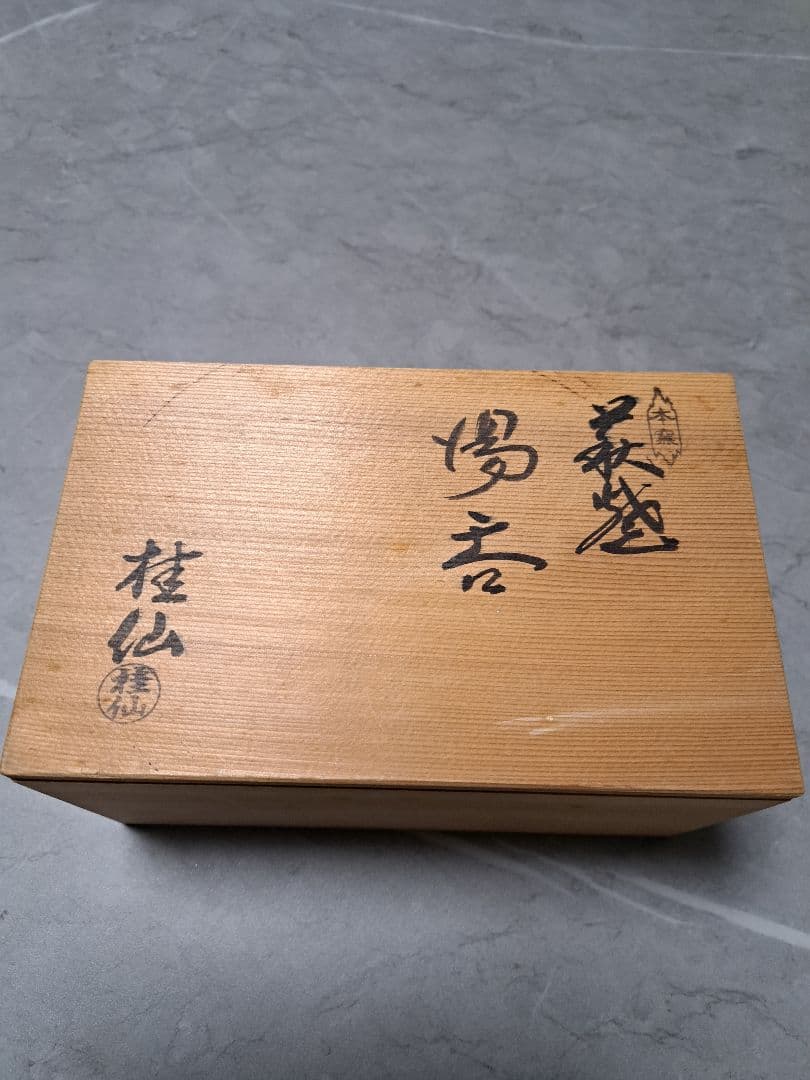 本窯
萩焼
湯呑
桂仙
桂仙